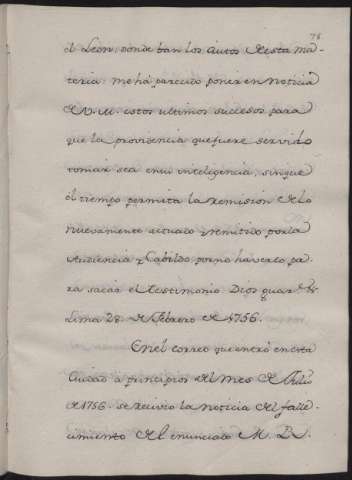 76
el Leon, donde ban los autos de esta ma-
teria: me há parecido poner en noticia
de V. M. estos ultimos sucesos para
que la providencia que fuere servido
tomar sea en su inteligencia, sin que
el tiempo permita la remision de lo
nuevamente actuado y remitido por la
Audiencia y Cabildo, por no haverlo pa-
ra sacar el testimonio Dios guar.e &.
Lima 28 de Febrero de 1756.
En el correo que entró en esta
Ciudad a principios del mes de Julio
de 1756. se recivio la noticia del falle-
cimiento del enunciado M. R.